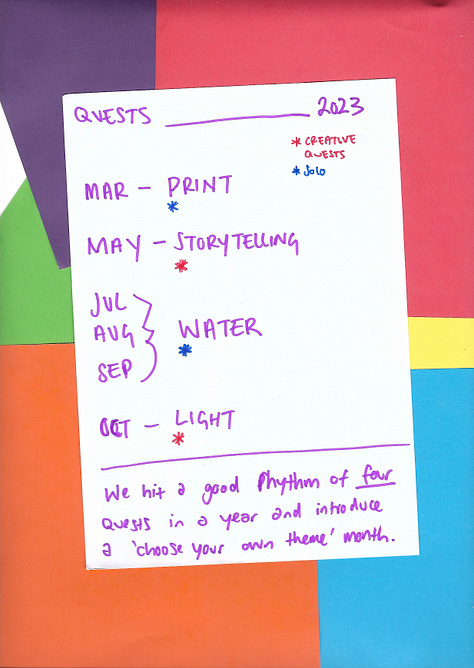 QUESTS ________ 2023
* CREATIVE
QUESTS
* SOLO
MAR - PRINT
*
MAY - STORYTELLING
*
JUL
AUG } WATER
SEP
*
OCT - LIGHT
*
We hit a good rhythm of four
Quests in a year and introduce
a 'choose your own theme' month.